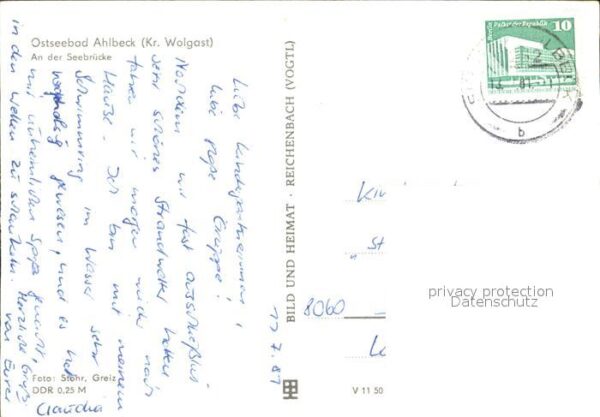 Ostseebad Ahlbeck (Kr. Wolgast)
An der Seebrücke
Liebe Kindergärtnerinnen,
liebe Gruppe!
Nachdem wir fast ausschließlich
sehr schönes Strandwetter hatten
fahren wir morgen wieder nach
Hause. Ich bin mit meinem
Schwimmring im Wasser sehr
gewesen, und es hat
mir unheimlichen Spaß gemacht,
in den Wellen zu schaukeln. Herzliche Grüße
von Eurer
Claudia
Foto: Stöhr, Greiz
DDR 0,25 M
BILD UND HEIMAT · REICHENBACH (VOGTL)
V 11 50
17.7.81
8060
Berlin Palast der Republik
10
DDR
b
privacy protection
Datenschutz